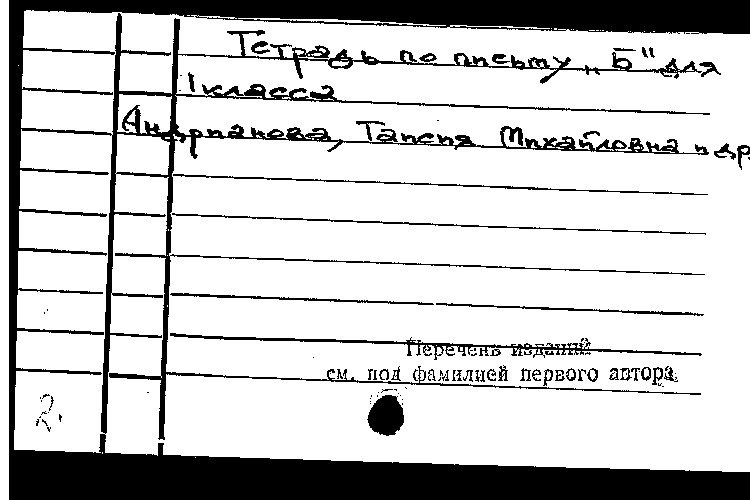 Тетрадь по письму „Б" для
1 класса
Андрианова, Таисия Михайловна и др
Перечень изданий
см. под фамилией первого автора.
2.